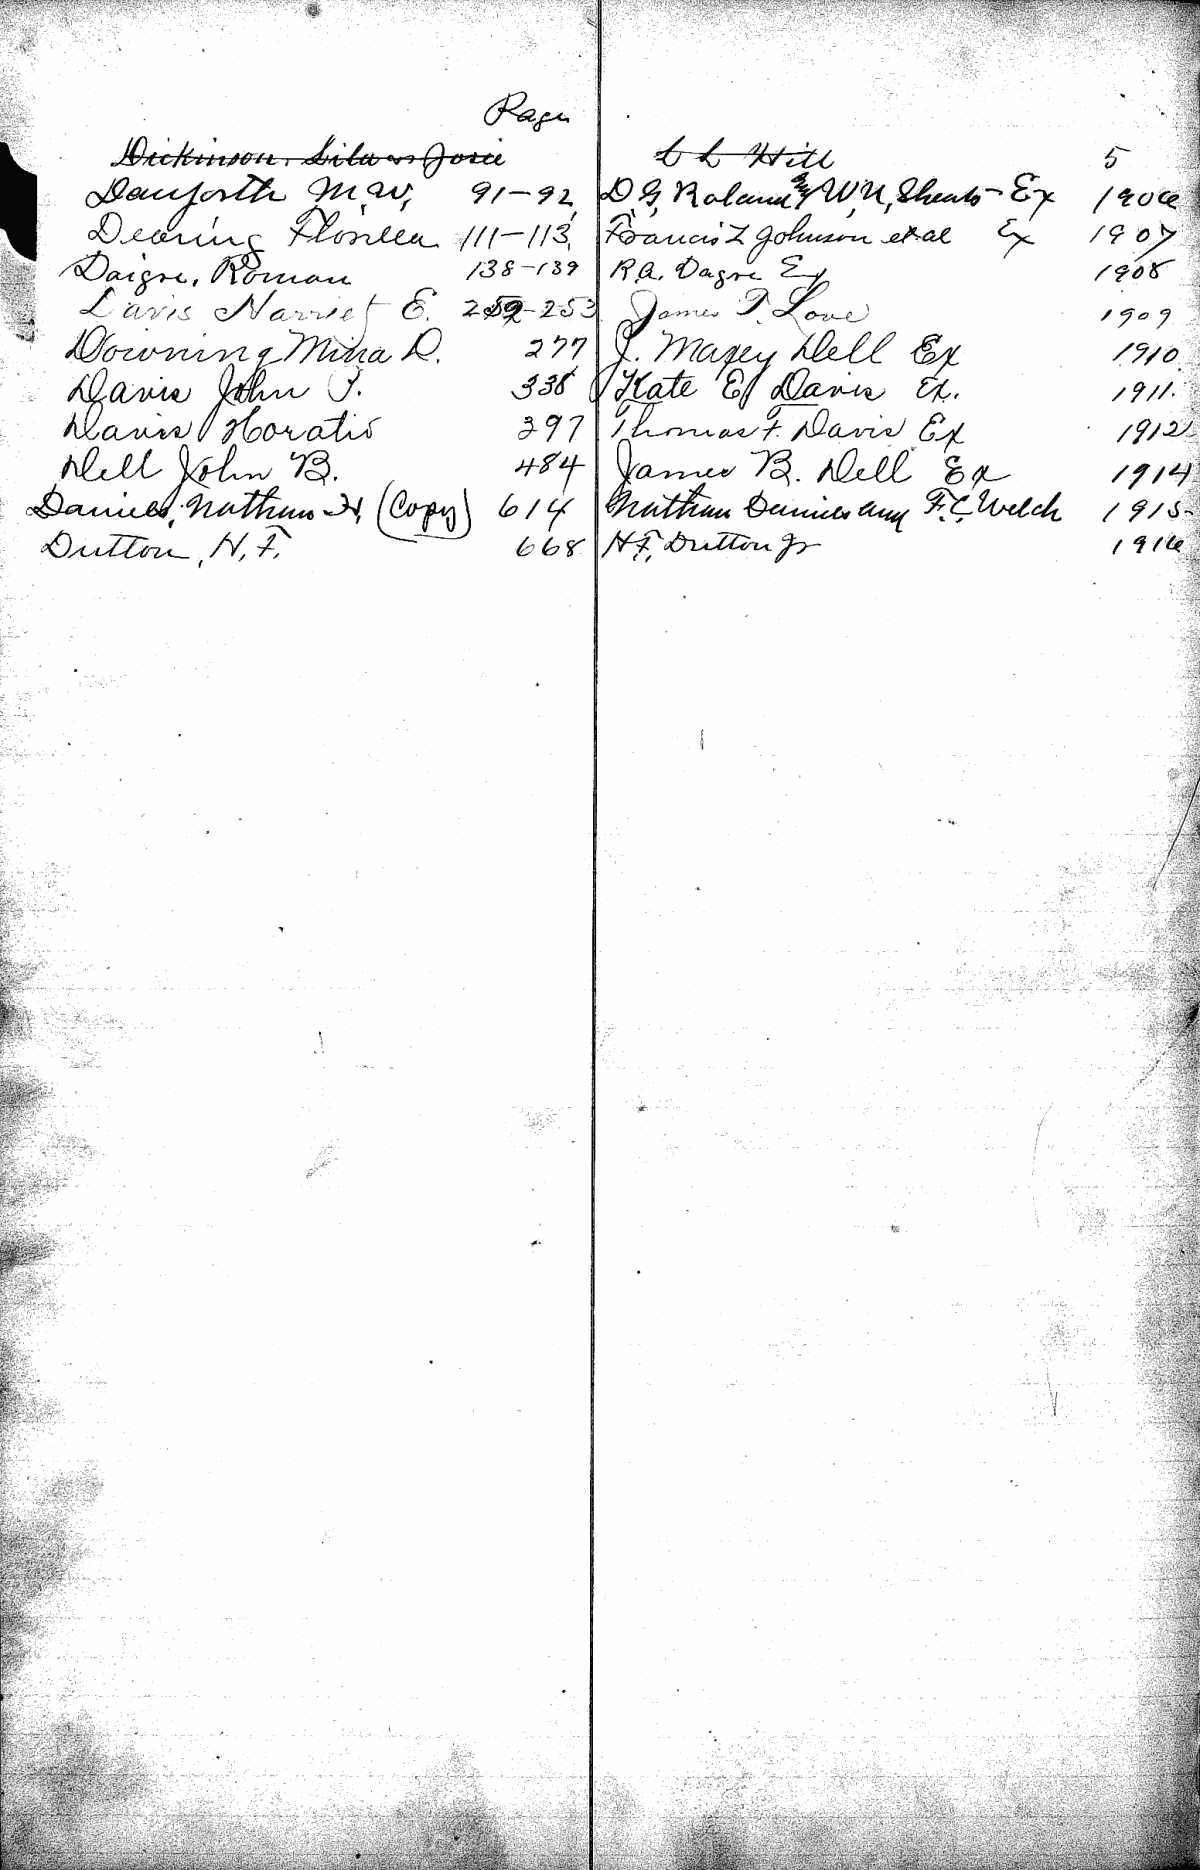 Page
Dickinson, Josie C L Hill 5
Danforth M.W. 91-92 D.G. Roland by W.N. Sheats - Ex 1906
Dearing Florilla 111-113 Francis L Johnson et al Ex 1907
Daigre, Roman 138-139 R.A. Dagre Ex 1908
Davis Harriet E. 252-253 James P. Love 1909
Downing Mina D. 277 J. Maxey Dell Ex 1910
Davis John P. 338 Kate E. Davis Ex. 1911.
Davis Horatio 397 Thomas F. Davis Ex 1912
Dell John B. 484 James B. Dell Ex 1914
Daniels, Nathan H. (Copy) 614 Nathan Daniels and F.C. Welch 1915
Dutton, H.F. 668 H.F. Dutton Jr 1916